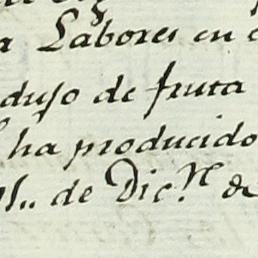 a Labores en
dujo de fruta
ha producido
de Dic.re de